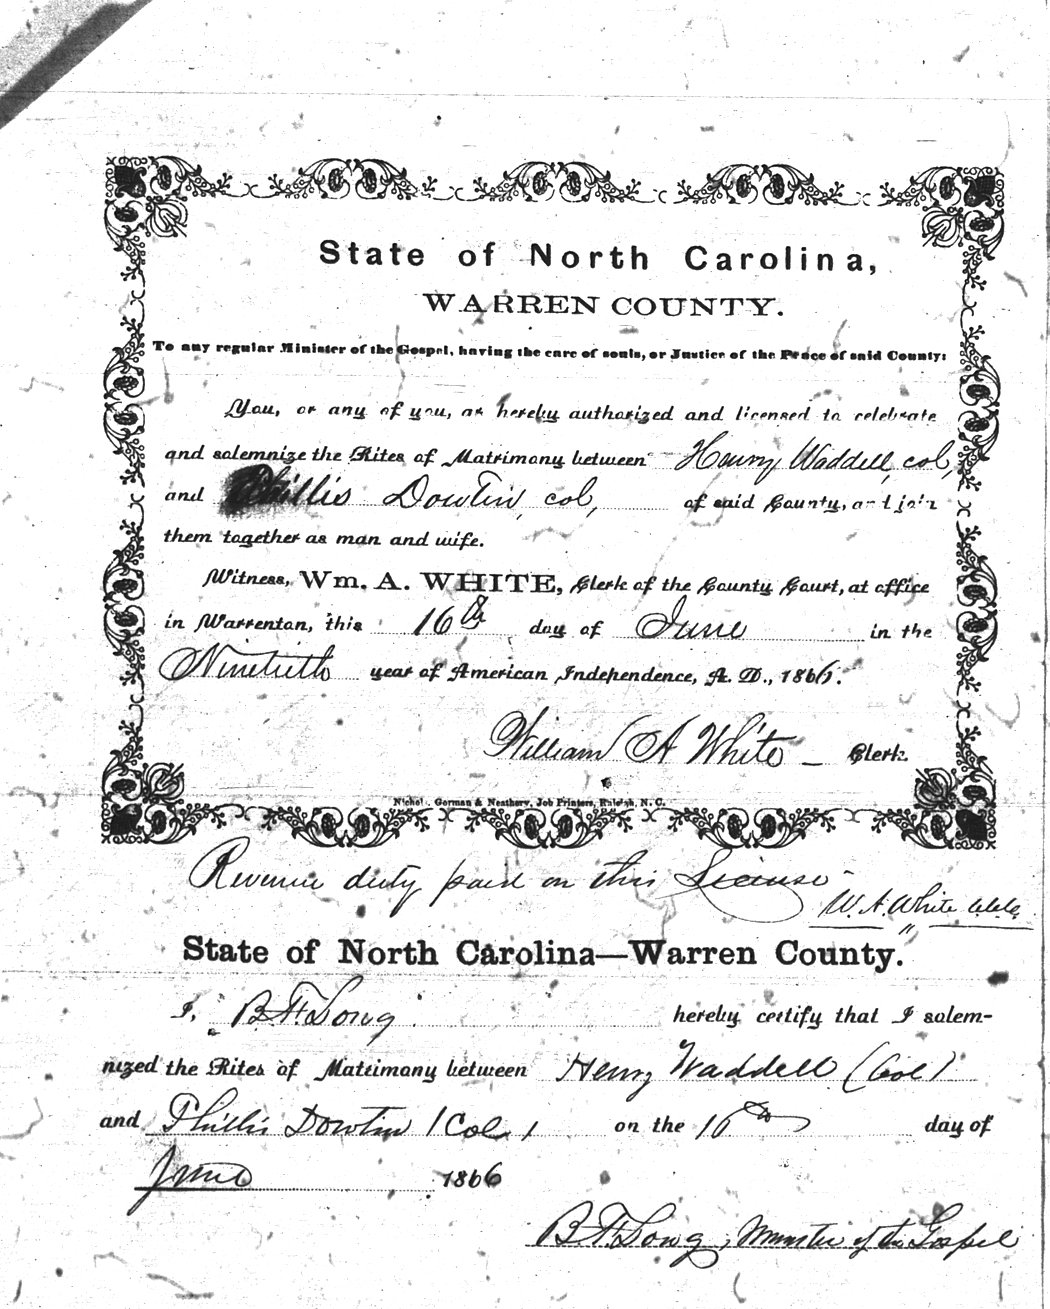 State of North Carolina,
WARREN COUNTY.
To any regular Minister of the Gospel, having the care of souls, or Justice of the Peace of said County:
You, or any of you, are hereby authorized and licensed to celebrate
and solemnize the Rites of Matrimony between Henry Waddell, col,
and Phillis Dowtin, col, of said County, and join
them together as man and wife.
Witness, Wm. A. WHITE, Clerk of the County Court, at office
in Warrenton, this 16th day of June in the
Ninetieth year of American Independence, A. D., 1866.
William A White — Clerk.
Nichols, Gorman & Neathery, Job Printers, Raleigh, N. C.
Revenue duty paid on this License -
W. A. White
State of North Carolina—Warren County.
I, B F Long hereby certify that I solem-
nized the Rites of Matrimony between Henry Waddell (Col)
and Phillis Dowtin (Col) on the 16th day of
June 1866
B. F. Long, Minister of the Gospel